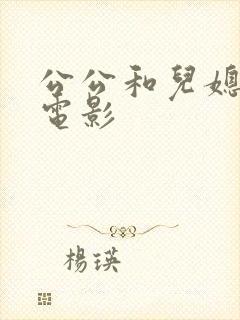 公公和兒媳
電影
楊瑛